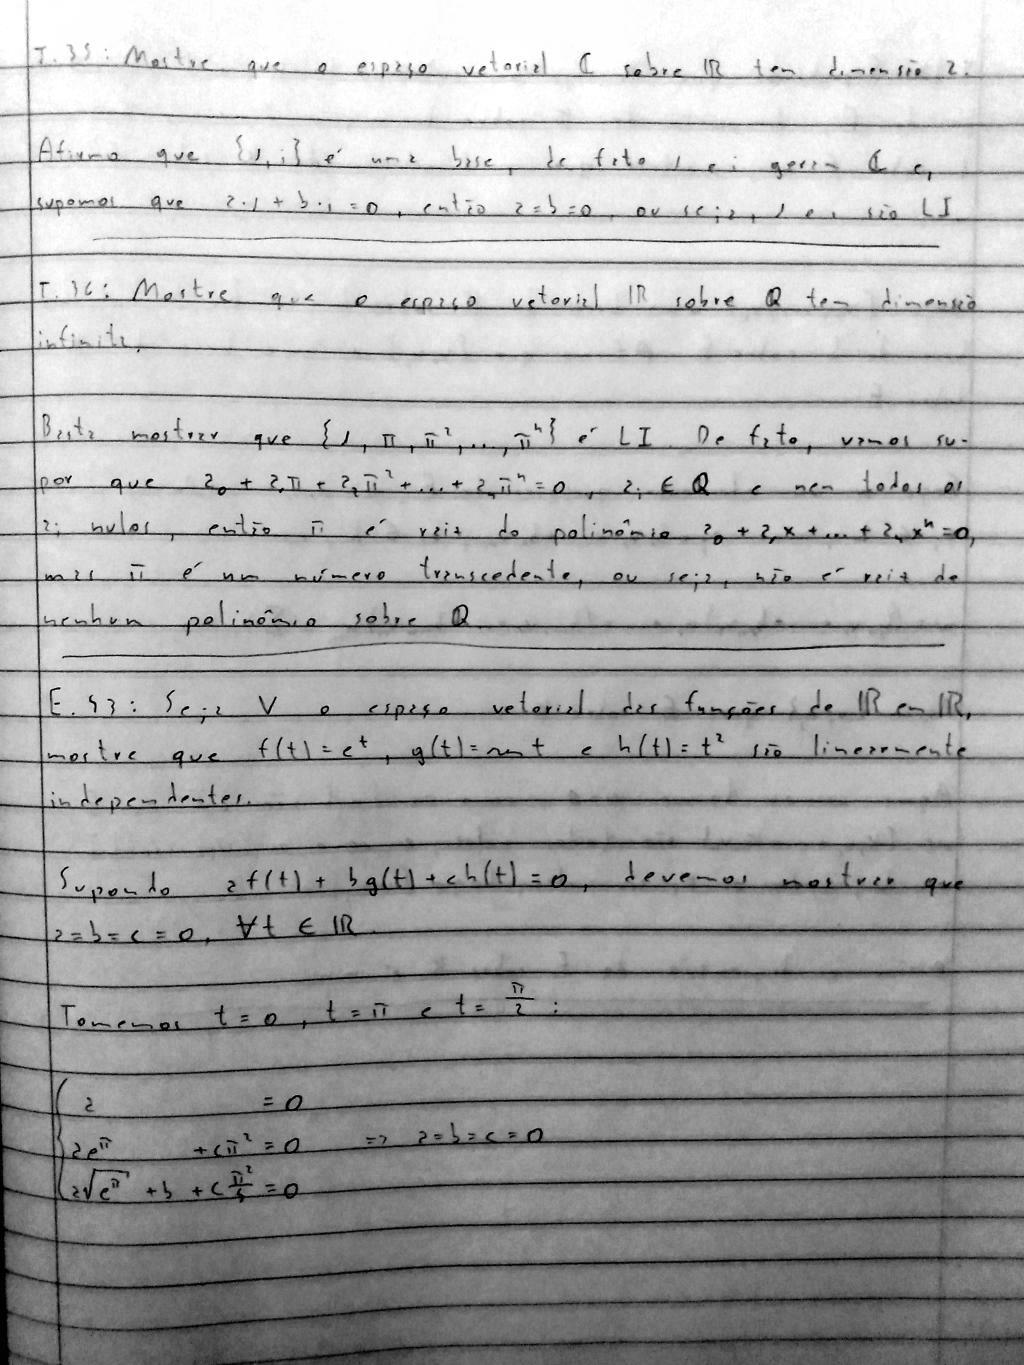 T.35: Mostre que o espaço vetorial ℂ sobre ℝ tem dimensão 2.
Afirmo que {1, i} é uma base, de fato 1 e i geram ℂ e,
supomos que a·1 + b·i = 0, então a=b=0, ou seja, 1 e i são LI
T.36: Mostre que o espaço vetorial ℝ sobre ℚ tem dimensão
infinita.
Basta mostrar que {1, π, π², ..., πⁿ} é LI. De fato, vamos su-
por que a₀ + a₁π + a₂π² + ... + aₙπⁿ = 0, aᵢ ∈ ℚ e nem todos os
aᵢ nulos, então π é raiz do polinômio a₀ + a₁x + ... + aₙxⁿ = 0,
mas π é um número transcedente, ou seja, não é raiz de
nenhum polinômio sobre ℚ
E.43: Seja V o espaço vetorial das funções de ℝ em ℝ,
mostre que f(t) = eᵗ, g(t) = sen t e h(t) = t² são linearmente
independentes.
Supondo af(t) + bg(t) + ch(t) = 0, devemos mostrar que
a=b=c=0, ∀t ∈ ℝ.
Tomemos t=0, t=π e t=π/2:
{ a = 0
ae^π + cπ² = 0 => a=b=c=0
a√(e^π) + b + c π²/4 = 0